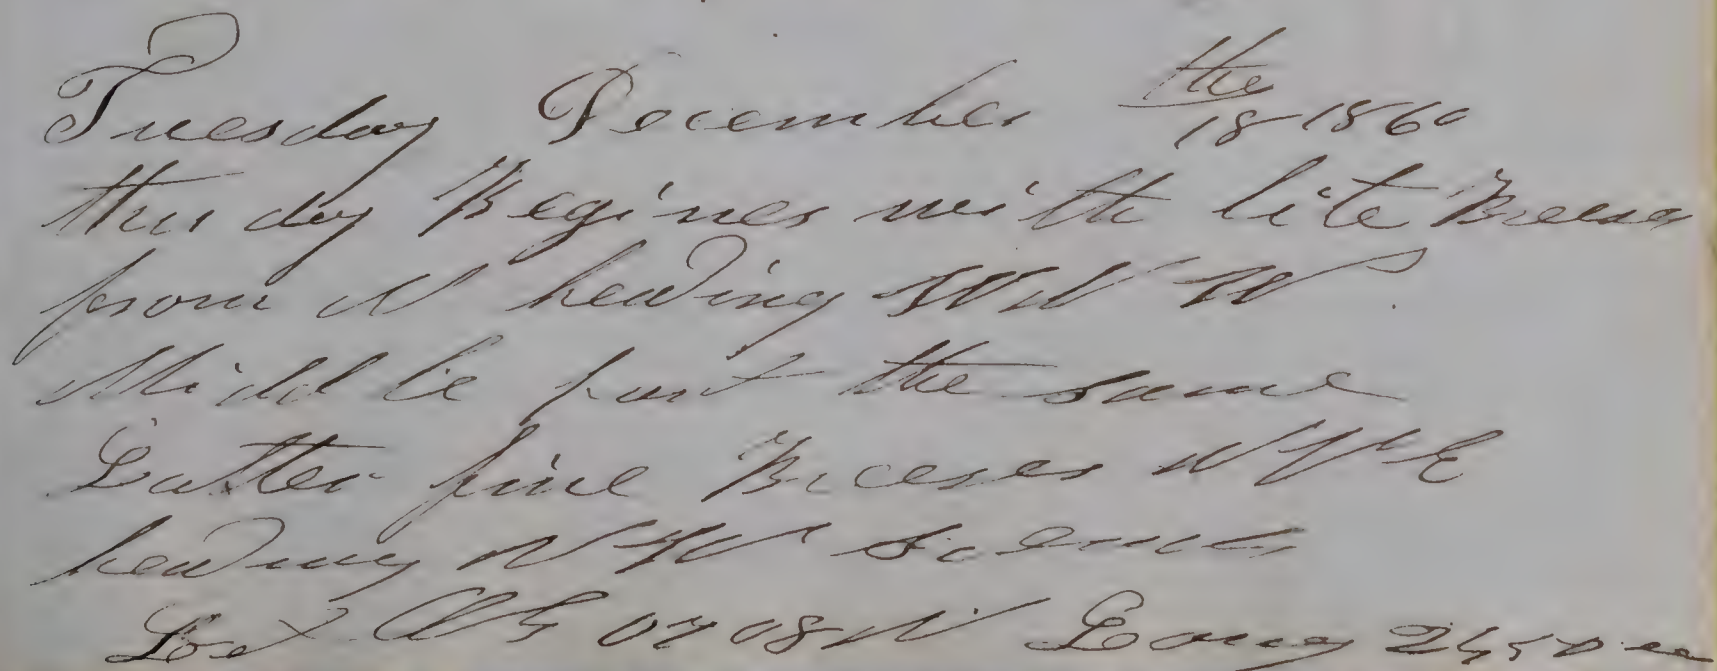 Tuesday December the 18 1860
this day Begines with lite Breeses
from N heading WNW
Middle part the same
Latter fine Breeses N
heading NW
Lat 07 08 N Long